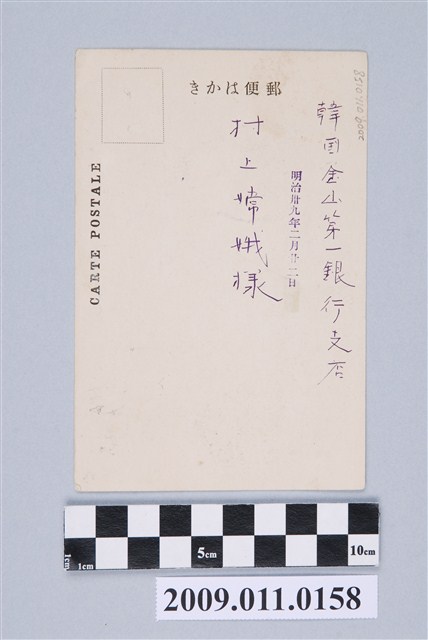 きかは便郵
韓国釜山第一銀行支店
明治卅九年二月廿二日
村上嫦娥様
CARTE POSTALE
1cm
1cm
5cm
10cm
2009.011.0158